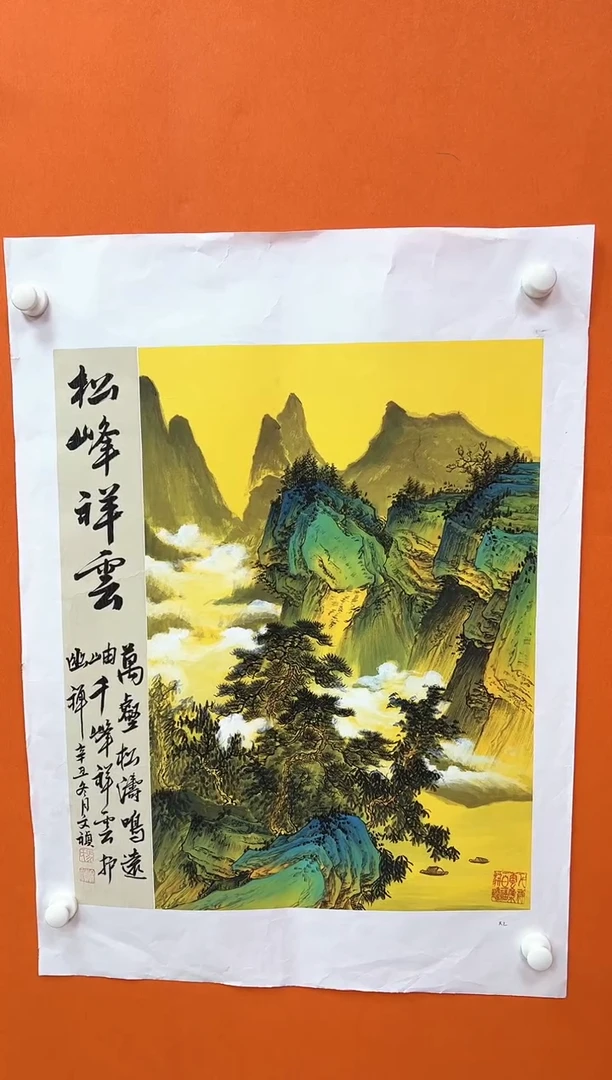 松峰祥雲
萬壑松濤鳴遠
岫千峰祥雲护
幽禅辛丑冬月文禎